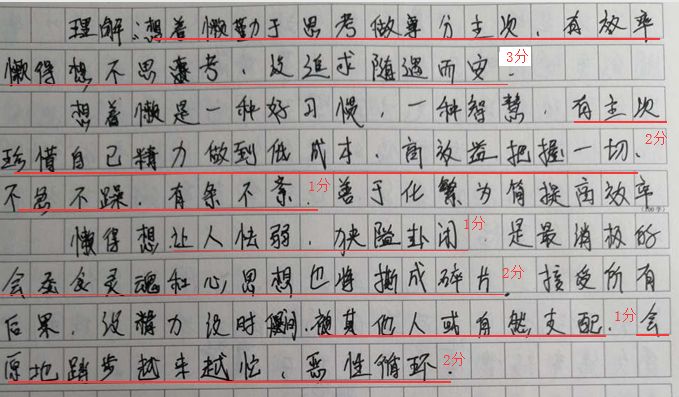 理解:想着懒勤于思考做事分主次、有效率
懒得想不思考、没追求随遇而安.
3分
想着懒是一种好习惯、一种智慧、有主次
珍惜自己精力做到低成本、高效益把握一切、
2分
不急不躁、有条不紊、善于化繁为简提高效率
1分
(100字)
懒得想让人怯弱、狭隘封闭、是最消极的
1分
会吞食灵魂和心思想也将撕成碎片. 接受所有
2分
后果、没精力没时间、被其他人或自然支配、会
1分
原地踏步越来越忙、恶性循环.
2分